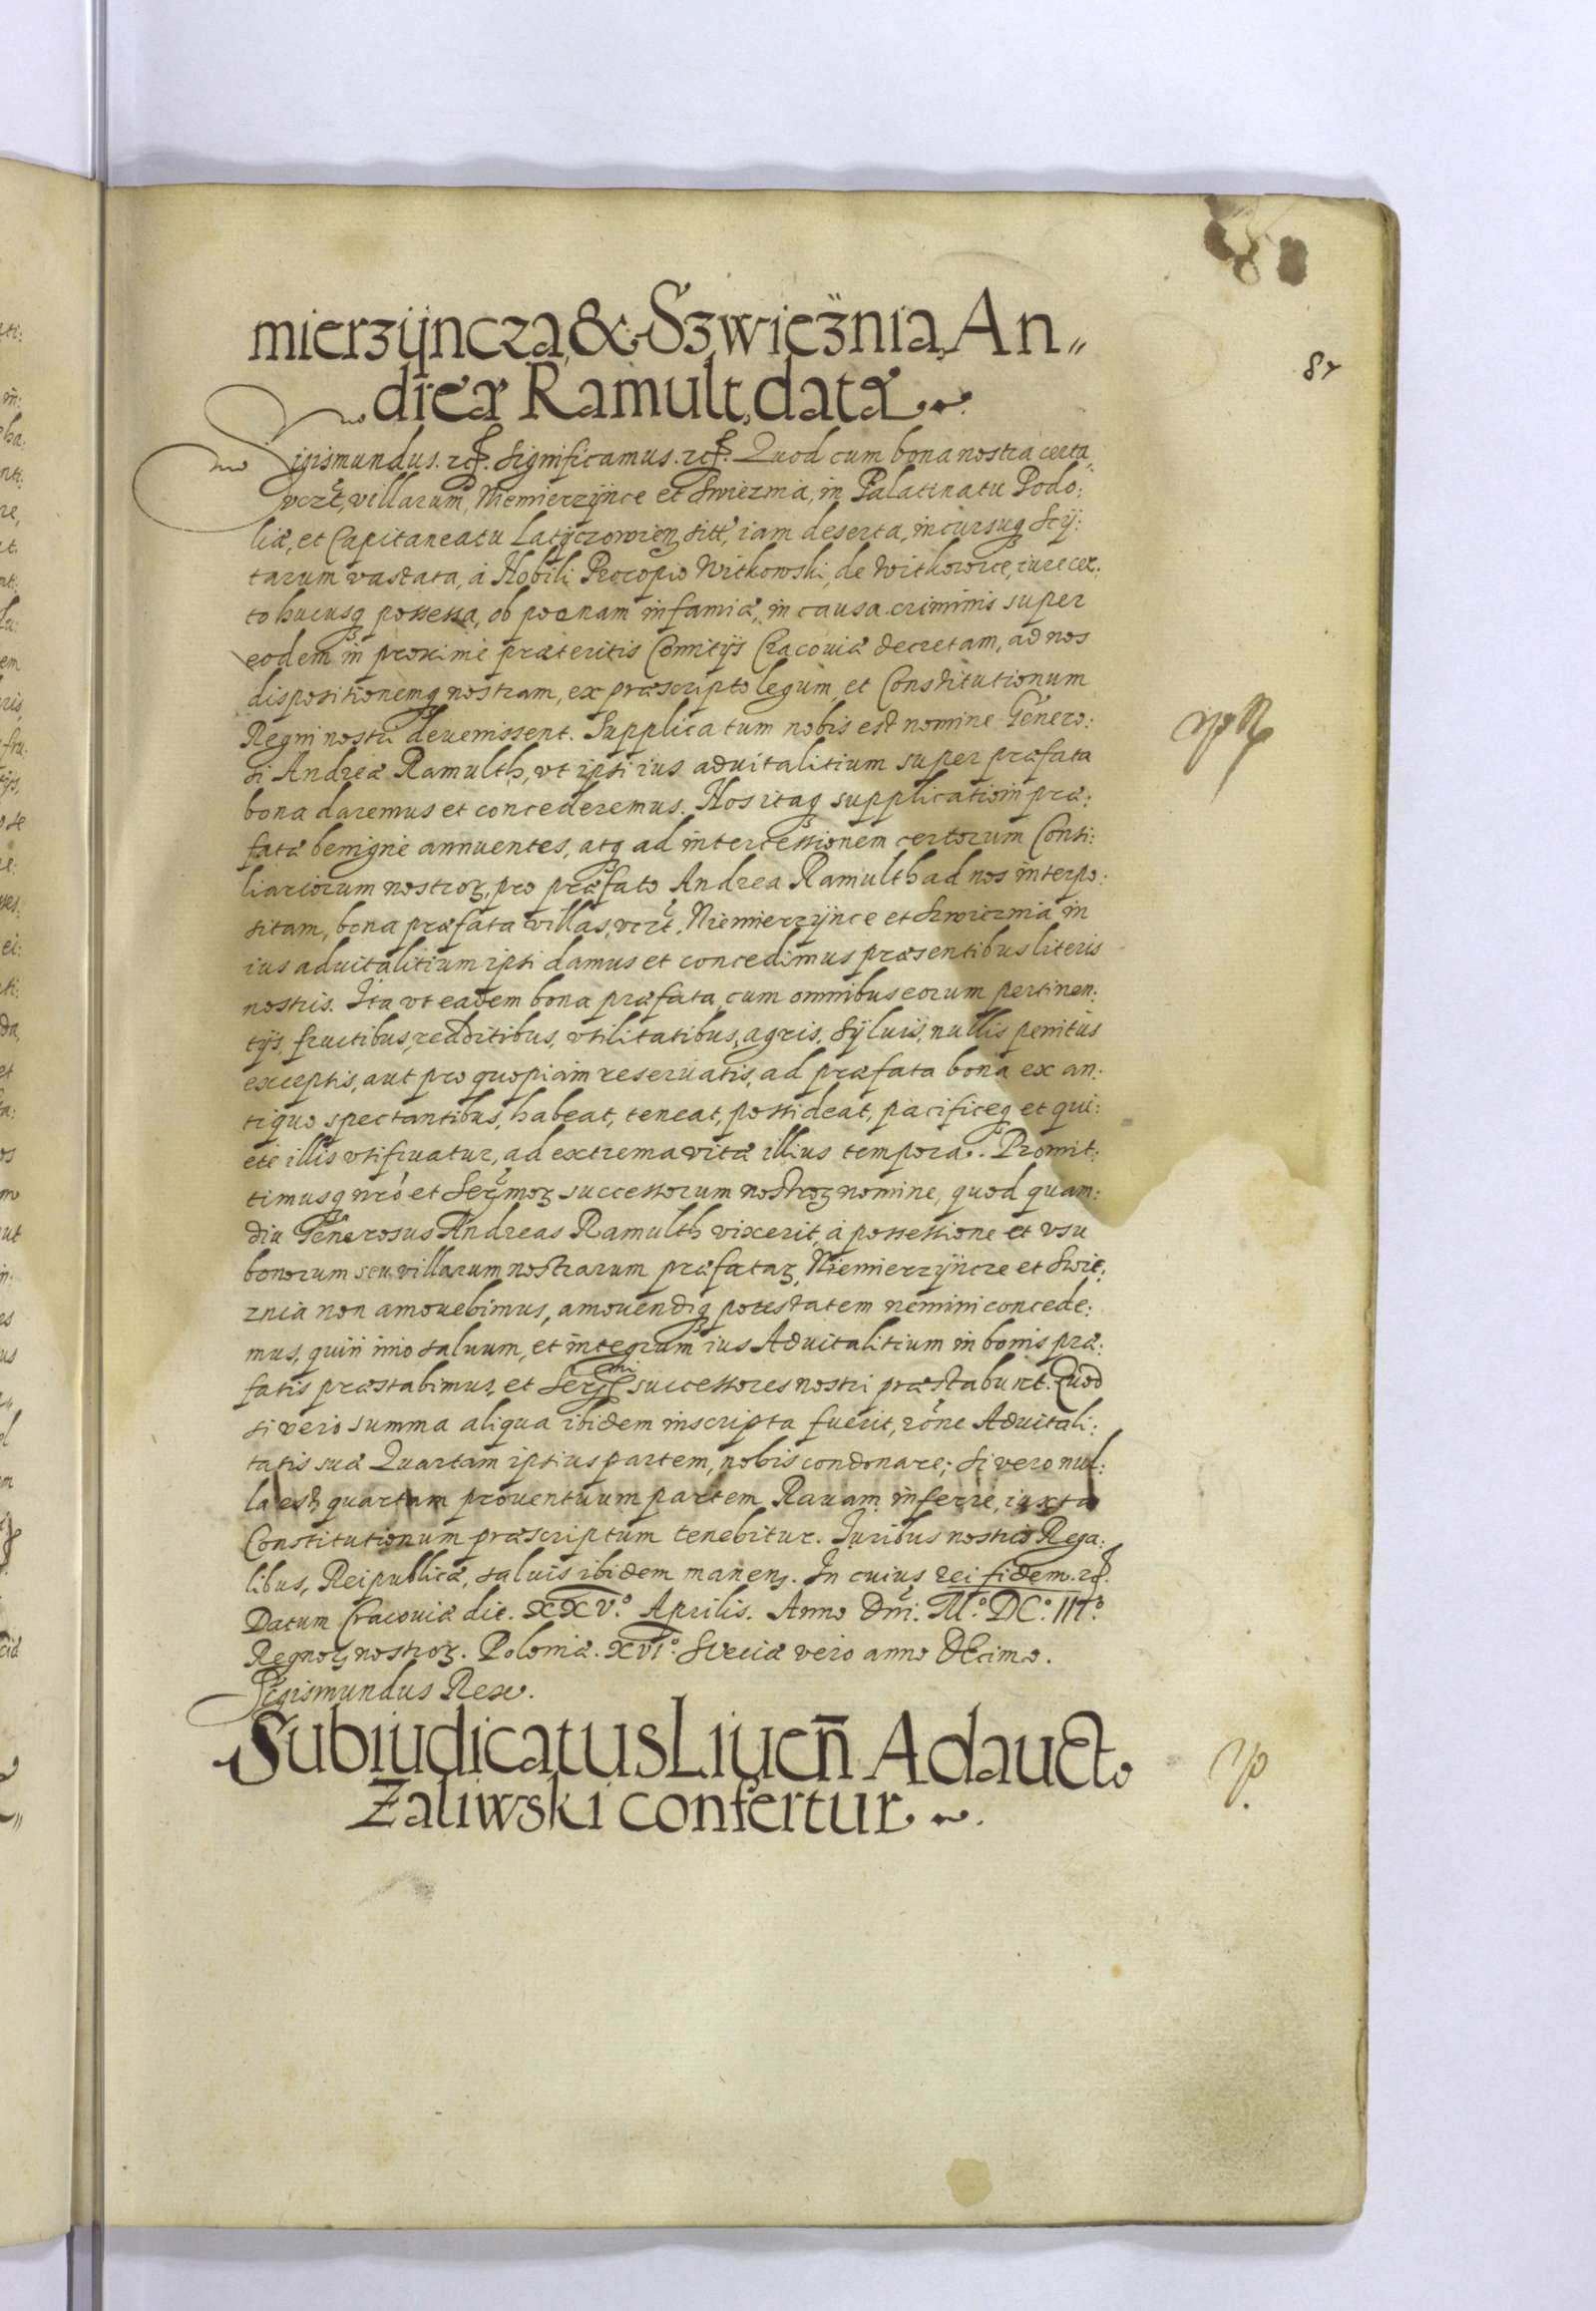 87
mierzÿncza & Szwieżnia An„
dreæ Ramult data
Sigismundus. etc. Significamus. etc. Quod cum bona nostra certa,
vczt, villarum, Niemierzÿnce et Swieznia, in Palatinatu Podo:
liæ, et Capitaneatu Latÿczowien sitt, iam deserta, incursuq Scÿ:
tarum vastata, à Nobili Procopio Witkowski, de Witkowice, iure cer:
to hucusq possessa, ob poenam infamiæ, in causa criminis super
eodem in proxime præteritis Comitijs Cracouiæ decretam, ad nos
dispositionemq nostram, ex præscripto legum et Constitutionum
Regni nostri deuenissent. Supplicatum nobis est nomine Genero:
si Andreæ Ramulth, vt ipsi ius aduitalitium super præfata
bona daremus et concederemus. Nos itaq supplicationi præ:
fatæ benigne annuentes, atq ad intercessionem certorum Consi:
liariorum nostroꝝ, pro præfato Andrea Ramulth ad nos interpo:
sitam, bona præfata villas, vczt, Niemierzÿnce et Szwieznia in
ius aduitalitium ipsi damus et concedimus præsentibus literis
nostris. Ita vt eadem bona præfata, cum omnibus eorum pertinen:
tijs, fructibus, redditibus, vtilitatibus, agris, sÿluis, nullis penitus
exceptis, aut pro quopiam reseruatis, ad præfata bona ex an:
tiquo spectantibus, habeat, teneat, possideat, pacificeq et qui:
ete illis vtifruatur, ad extrema vitæ illius tempora. Promit:
timusq nrô et Sermoꝝ successorum nostroꝝ nomine, quod quam:
diu Generosus Andreas Ramulth vixerit, à possessione et vsu
bonorum seu villarum nostrarum præfataꝝ, Niemierzÿncze et Swie:
znia non amouebimus, amouendiq potestatem nemini concede:
mus, quin imo saluum, et integrum ius Aduitalitium in bonis præ:
fatis præstabimus, et Sermi successores nostri præstabunt. Quod
si vero summa aliqua ibidem inscripta fuerit, rône Aduitali:
tatis suæ Quartam ipsius partem, nobis condonare; si vero nul:
la est, quartam prouentuum partem Rauam inferre, iuxta
Constitutionum præscriptum tenebitur. Iuribus nostris Rega:
libus, Reipublicæ, saluis ibidem manen. In cuius rei fidem. etc.
Datum Cracouiæ die. XXV.° Aprilis. Anno Dni. M.° DC.° III.°
Regnoꝝ nostroꝝ. Poloniæ. XVI.° Sueciæ vero anno DEcimo.
Sigismundus Rex.
Subiudicatus Liuen̄ Adaucto
Zaliwski confertur